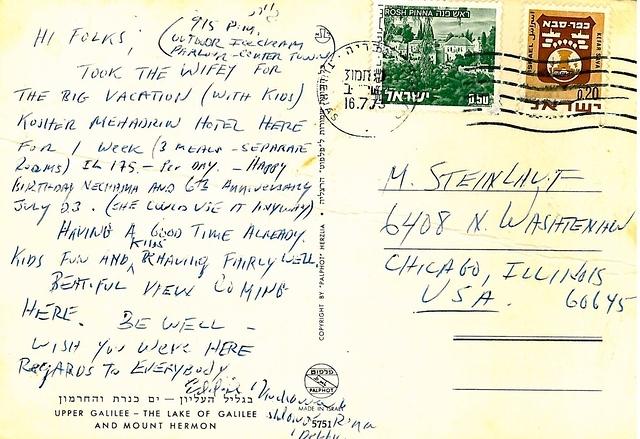 HI FOLKS,
9:15 P.M.
(OUTDOOR ICECREAM
PARLOR-CENTER TOWN)
TOOK THE WIFEY FOR
THE BIG VACATION (WITH KIDS)
KOSHER MEHADRIN HOTEL HERE
FOR 1 WEEK (3 MEALS - SEPARATE
ROOMS) IL 175.- PER DAY. - HAPPY
BIRTHDAY NECHAMA AND 6TH ANNIVERSARY
JULY 23. (SHE COULD USE IT ANYWAY)
HAVING A GOOD TIME ALREADY.
KIDS FUN AND KIDS BEHAVING FAIRLY WELL
BEATIFUL VIEW COMING
HERE. BE WELL -
WISH YOU WERE HERE
REGARDS TO EVERYBODY.
בגליל העליון - ים כנרת והחרמון
UPPER GALILEE - THE LAKE OF GALILEE
AND MOUNT HERMON
COPYRIGHT BY "PALPHOT" HERZLIA
פלפוט
PALPHOT
MADE IN ISRAEL
5751
ראש פנה ROSH PINNA
ישראל
0.50
16.7.73
כפר-סבא
KEFAR SAVA
ISRAEL
0.20
ישראל
M. STEINLAUF
6408 N. WASHTENAW
CHICAGO, ILLINOIS
USA. 60645